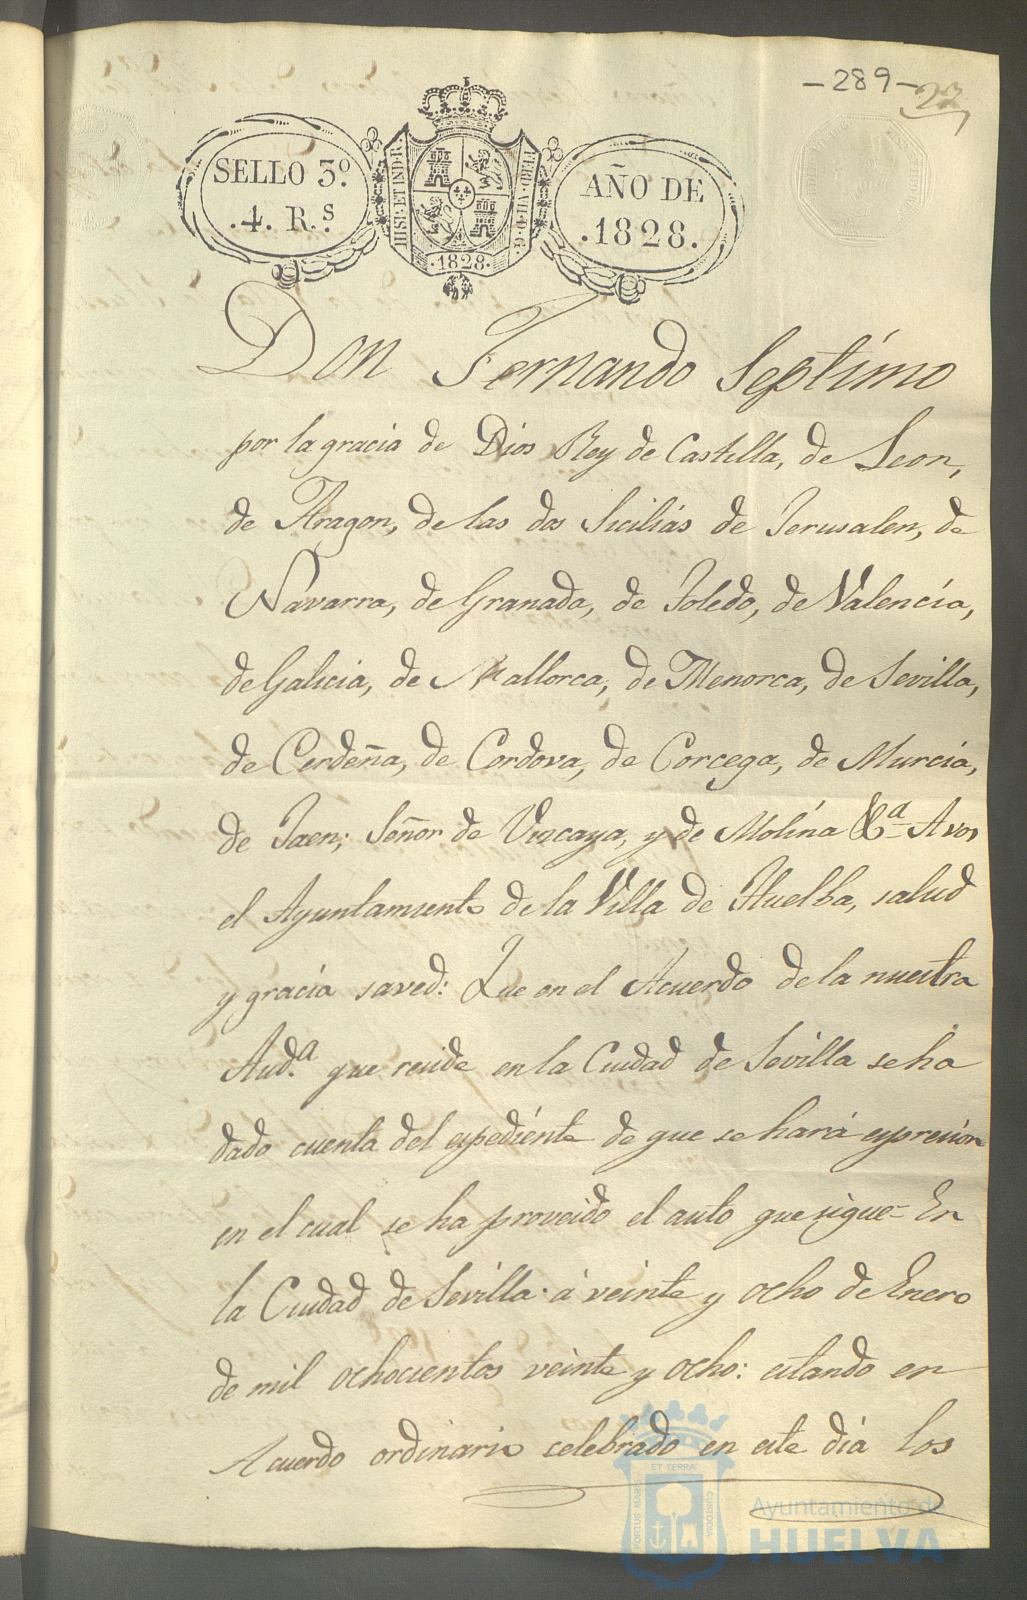 -289-
22
SELLO 3.º
.4. R.s
HISP. ET IND. R.
FERD. VII. D. G.
.1828.
AÑO DE
.1828.
Don Fernando Septimo
por la gracia de Dios Rey de Castilla, de Leon,
de Aragon, de las dos Sicilias de Jerusalen, de
Navarra, de Granada, de Toledo, de Valencia,
de Galicia, de Mallorca, de Menorca, de Sevilla,
de Cerdeña, de Cordova, de Corcega, de Murcia,
de Jaen; Señor de Vizcaya, y de Molina &.ª A vos
el Ayuntamiento de la Villa de Huelba, salud
y gracia saved: Que en el Acuerdo de la nuestra
Aud.ª que reside en la Ciudad de Sevilla se ha
dado cuenta del expediente de que se hará expresion
en el cual se ha proveido el auto que sigue= En
la Ciudad de Sevilla á veinte y ocho de Enero
de mil ochocientos veinte y ocho: estando en
Acuerdo ordinario celebrado en este dia los
ET TERRÆ
PORTUS MARIS
CUSTODIA
Ayuntamiento de
HUELVA